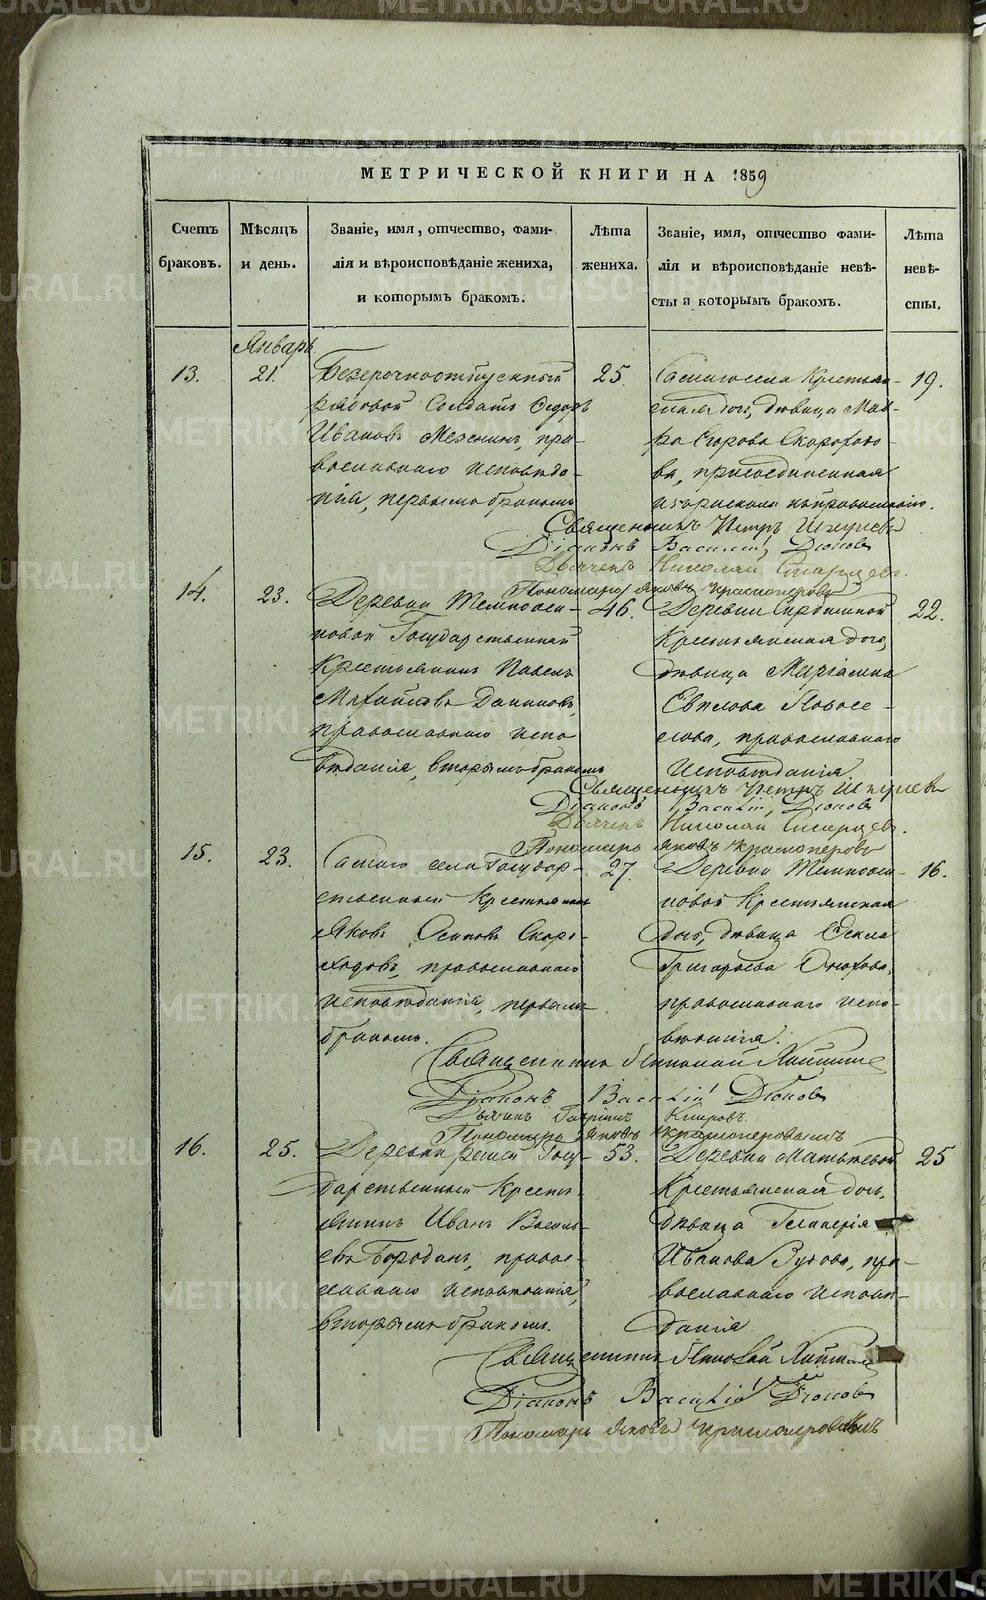 МЕТРИЧЕСКОЙ КНИГИ НА 1859
Счетъ браковъ.
Мѣсяцъ и день.
Званіе, имя, отчество, фами-
лія и вѣроисповѣданіе жениха,
и которымъ бракомъ.
Лѣта жениха.
Званіе, имя, отчество фами-
лія и вѣроисповѣданіе невѣ-
сты и которымъ бракомъ.
Лѣта невѣ-
сты.
Январь
13.
21.
Безсрочноотпускный
рядовой Солдатъ Ѳедоръ
Ивановъ пра-
вославнаго исповѣда-
нія, первымъ бракомъ
25.
Самагосела Крестьян-
ская дочь, дѣвица Мав-
ра Егорова Скороходо-
ва, присоединенная
изъ раскола къ православію.
19.
Священникъ Петръ
Діаконъ Василій Дюковъ
Дьячекъ Николай Старцевъ.
Пономарь Яковъ Красноперовъ
14.
23.
Деревни Темнооси-
новой Государственной
Крестьянинъ Павелъ
Михайловъ Даниловъ,
православнаго испо-
вѣданія, вторымъ бракомъ
46.
Деревни
Крестьянская дочь,
дѣвица
Новосе-
лова, православнаго
Исповѣданія.
22.
Священникъ Петръ
Діаконъ Василій Дюковъ
Дьячекъ Николай Старцевъ.
Пономарь Яковъ Красноперовъ
15.
23.
Самаго села Государ-
ственный Крестьянинъ
Яковъ Осиповъ Скоро-
ходовъ, православнаго
исповѣданія, первымъ
бракомъ.
27.
Деревни Темнооси-
новой Крестьянская
дочь, дѣвица Ѳекла
Григорьева
православнаго испо-
вѣданія.
16.
Священникъ Николай
Діаконъ Василій Дюковъ
Дьячекъ Гавріилъ Кипровъ
Пономарь Яковъ Красноперовыхъ
16.
25.
Деревни Госу-
дарственный Кресть-
янинъ Иванъ Василь-
евъ Бородинъ, право-
славнаго исповѣданія,
вторымъ бракомъ.
53.
Деревни
Крестьянская дочь,
дѣвица Гликерія
Иванова пра-
вославнаго исповѣ-
данія
25
Священникъ Николай
Діаконъ Василій Дюковъ
Пономарь Яковъ
METRIKI.GASO-URAL.RU